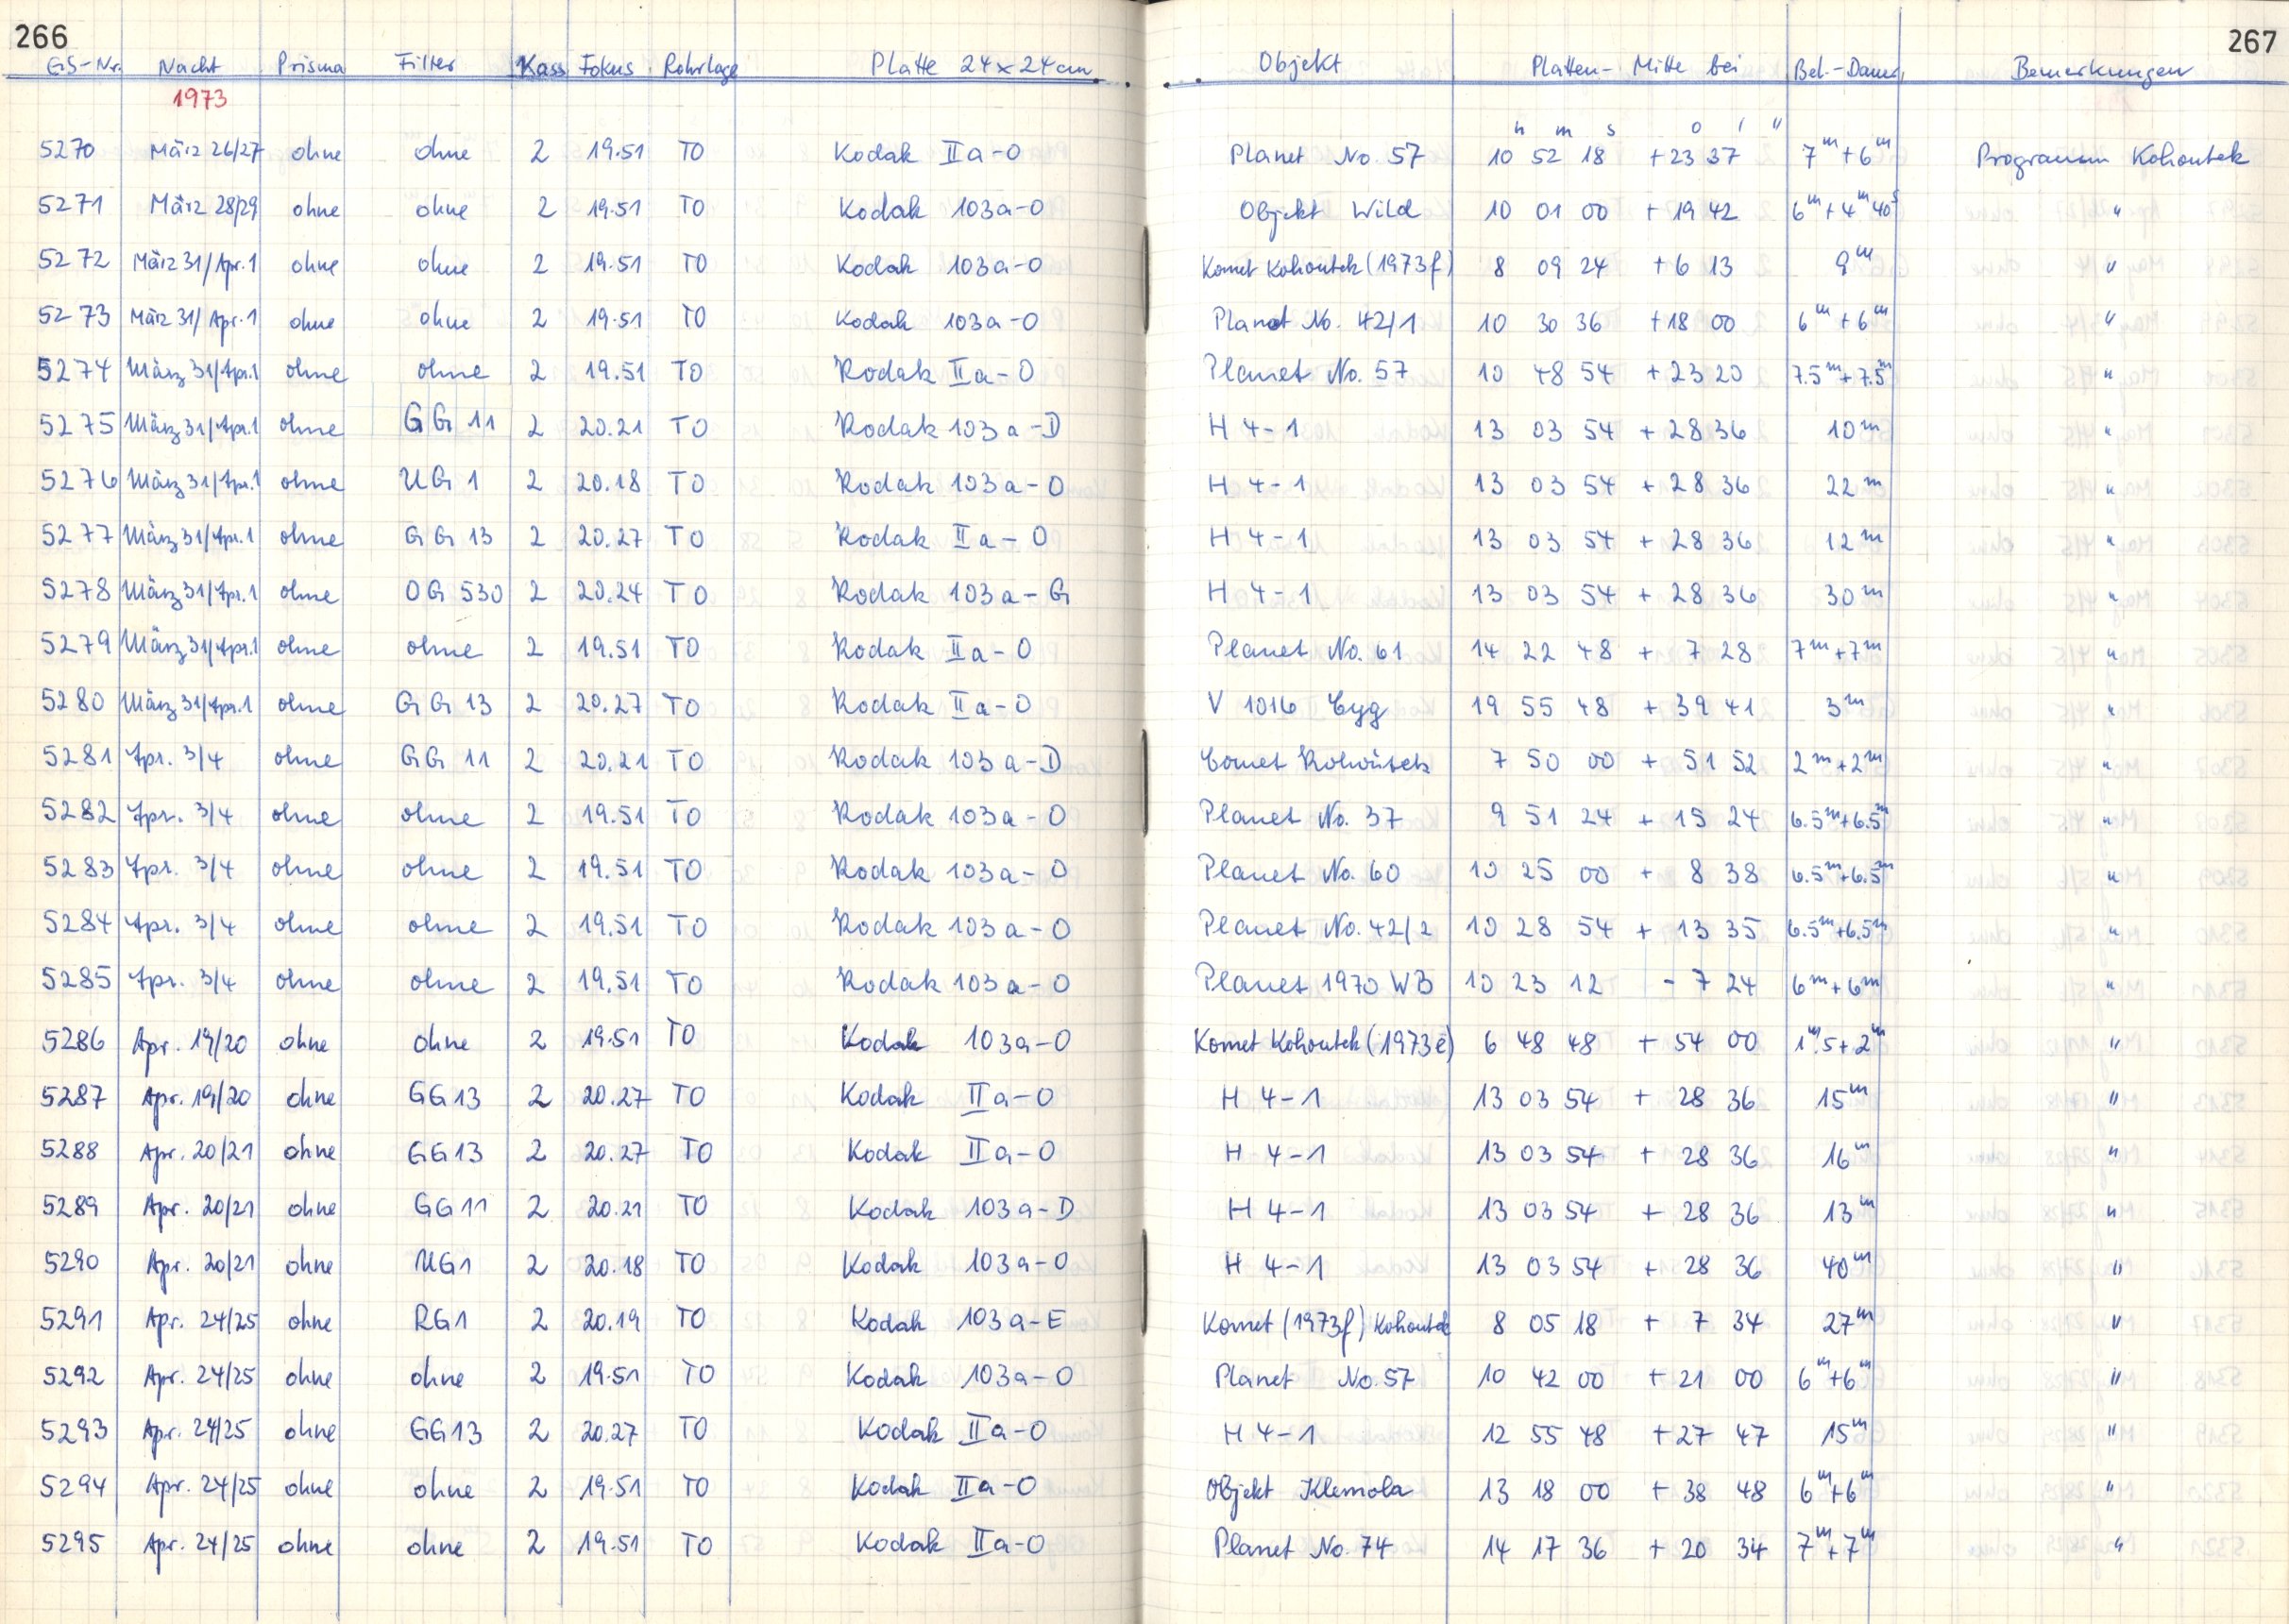 266 267
GS-Nr. Nacht Prisma Filter Kass Fokus Rohrlage Platte 24x24cm Objekt Platten-Mitte bei Bel.-Dauer Bemerkungen
1973
h m s ° ' "
5270 März 26/27 ohne ohne 2 19.51 TO Kodak IIa-O Planet No. 57 10 52 18 +23 37 7m+6m Programm Kohoutek
5271 März 28/29 ohne ohne 2 19.51 TO Kodak 103a-O Objekt Wild 10 01 00 +19 42 6m+4m40s "
5272 März 31/Apr.1 ohne ohne 2 19.51 TO Kodak 103a-O Komet Kohoutek (1973f) 8 09 24 +6 13 9m "
5273 März 31/Apr.1 ohne ohne 2 19.51 TO Kodak 103a-O Planet No. 42/1 10 30 36 +18 00 6m+6m "
5274 März 31/Apr.1 ohne ohne 2 19.51 TO Kodak IIa-O Planet No. 57 10 48 54 +23 20 7.5m+7.5m "
5275 März 31/Apr.1 ohne GG 11 2 20.21 TO Kodak 103a-D H 4-1 13 03 54 +28 36 10m "
5276 März 31/Apr.1 ohne UG 1 2 20.18 TO Kodak 103a-O H 4-1 13 03 54 +28 36 22m "
5277 März 31/Apr.1 ohne GG 13 2 20.27 TO Kodak IIa-O H 4-1 13 03 54 +28 36 12m "
5278 März 31/Apr.1 ohne OG 530 2 20.24 TO Kodak 103a-G H 4-1 13 03 54 +28 36 30m "
5279 März 31/Apr.1 ohne ohne 2 19.51 TO Kodak IIa-O Planet No. 61 14 22 48 +7 28 7m+7m "
5280 März 31/Apr.1 ohne GG 13 2 20.27 TO Kodak IIa-O V 1016 Cyg 19 55 48 +39 41 3m "
5281 Apr. 3/4 ohne GG 11 2 20.21 TO Kodak 103a-D Comet Kohoutek 7 50 00 +51 52 2m+2m "
5282 Apr. 3/4 ohne ohne 2 19.51 TO Kodak 103a-O Planet No. 37 9 51 24 +15 24 6.5m+6.5m "
5283 Apr. 3/4 ohne ohne 2 19.51 TO Kodak 103a-O Planet No. 60 10 25 00 +8 38 6.5m+6.5m "
5284 Apr. 3/4 ohne ohne 2 19.51 TO Kodak 103a-O Planet No. 42/2 10 28 54 +13 35 6.5m+6.5m "
5285 Apr. 3/4 ohne ohne 2 19.51 TO Kodak 103a-O Planet 1970 WB 10 23 12 -7 24 6m+6m "
5286 Apr. 19/20 ohne ohne 2 19.51 TO Kodak 103a-O Komet Kohoutek (1973e) 6 48 48 +54 00 1m.5+2m "
5287 Apr. 19/20 ohne GG13 2 20.27 TO Kodak IIa-O H 4-1 13 03 54 +28 36 15m "
5288 Apr. 20/21 ohne GG13 2 20.27 TO Kodak IIa-O H 4-1 13 03 54 +28 36 16m "
5289 Apr. 20/21 ohne GG11 2 20.21 TO Kodak 103a-D H 4-1 13 03 54 +28 36 13m "
5290 Apr. 20/21 ohne UG1 2 20.18 TO Kodak 103a-O H 4-1 13 03 54 +28 36 40m "
5291 Apr. 24/25 ohne RG1 2 20.19 TO Kodak 103a-E Komet (1973f) Kohoutek 8 05 18 +7 34 27m "
5292 Apr. 24/25 ohne ohne 2 19.51 TO Kodak 103a-O Planet No. 57 10 42 00 +21 00 6m+6m "
5293 Apr. 24/25 ohne GG13 2 20.27 TO Kodak IIa-O H 4-1 12 55 48 +27 47 15m "
5294 Apr. 24/25 ohne ohne 2 19.51 TO Kodak IIa-O Objekt Klemola 13 18 00 +38 48 6m+6m "
5295 Apr. 24/25 ohne ohne 2 19.51 TO Kodak IIa-O Planet No. 74 14 17 36 +20 34 7m+7m "